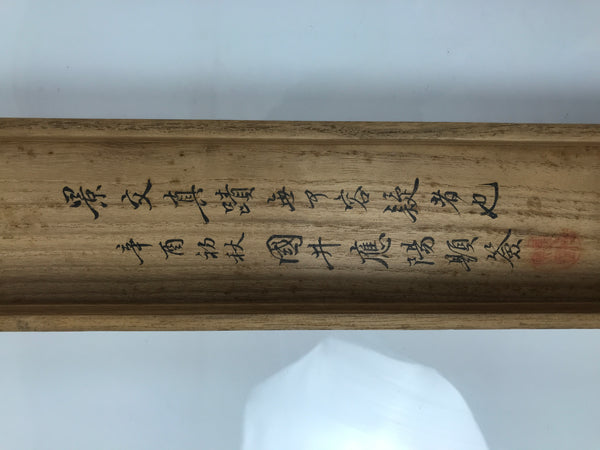 景文真蹟無可容疑者也
辛酉初秋 國井應陽題簽